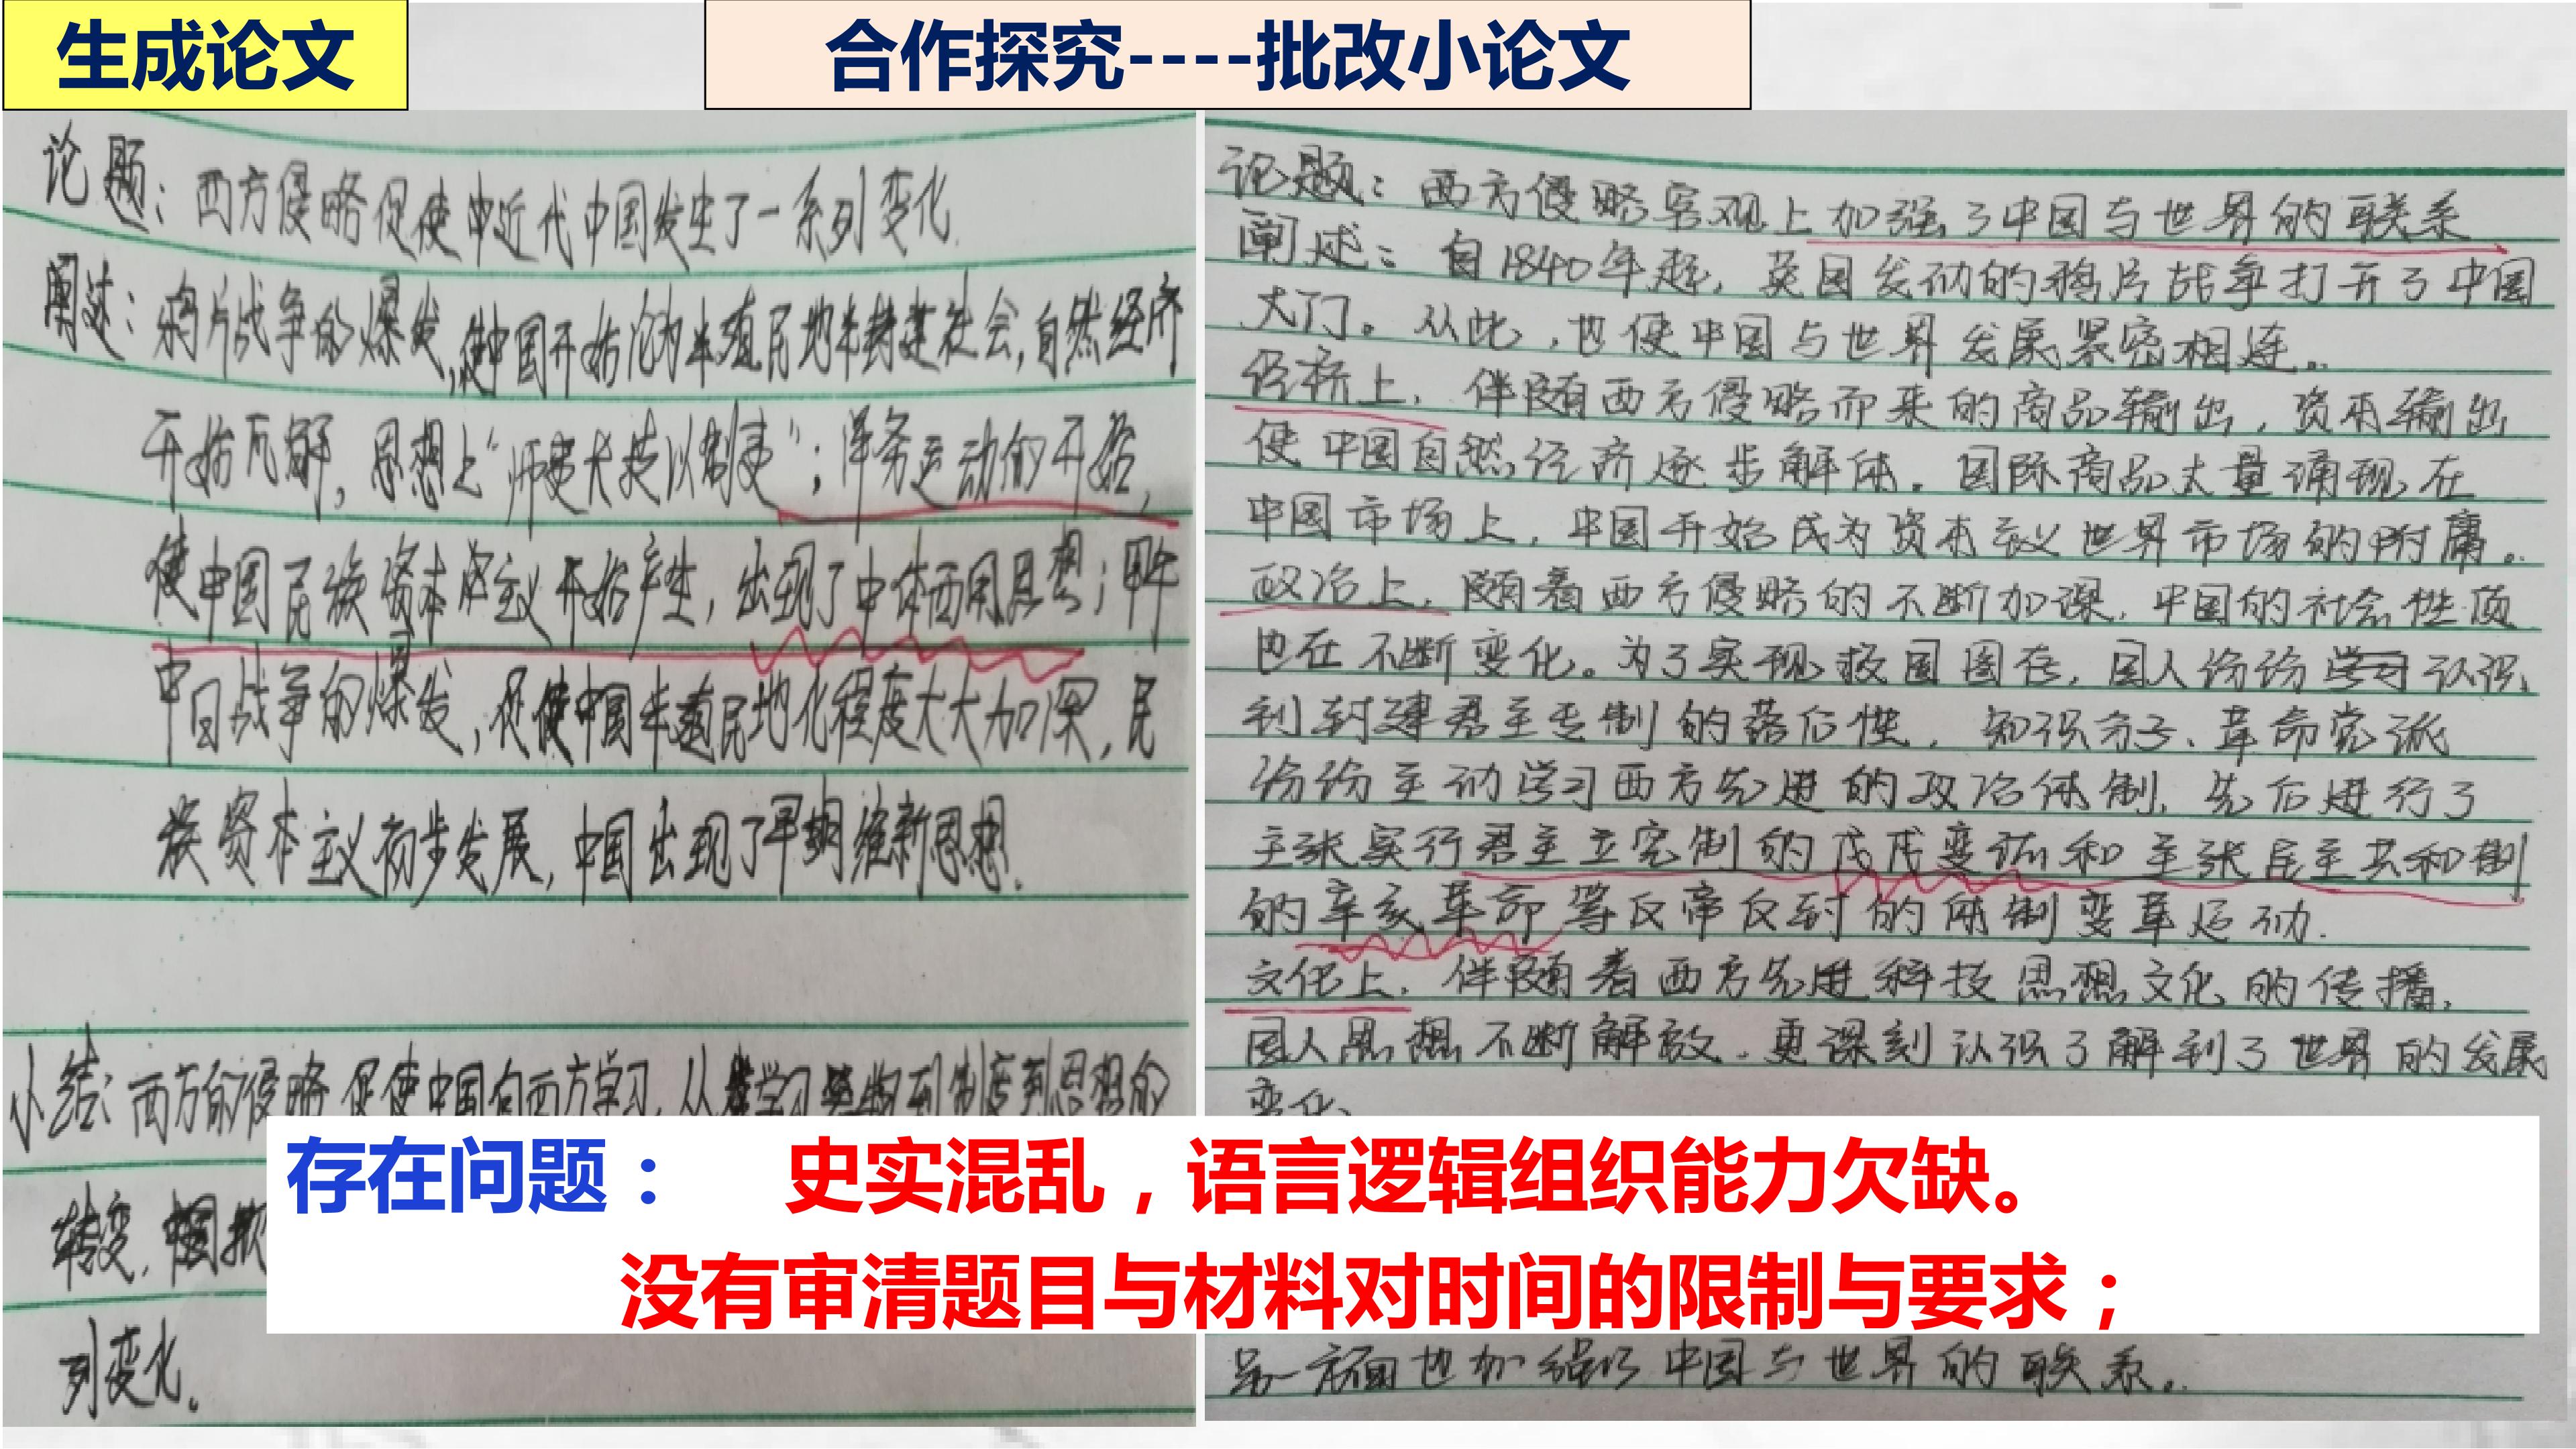 生成论文
合作探究----批改小论文
论题：西方侵略促使中近代中国发生了一系列变化.
阐述：鸦片战争的爆发,使中国开始沦为半殖民地半封建社会,自然经济
开始瓦解，思想上“师夷长技以制夷”；洋务运动的开始，
使中国民族资本主义开始产生，出现了中体西用思想；甲午
中日战争的爆发，促使中国半殖民地化程度大大加深，民
族资本主义初步发展，中国出现了早期维新思想.
小结：西方的侵略促使中国向西方学习，从学习器物到制度到思想的
转变，中国
列变化。
论题：西方侵略客观上加强了中国与世界的联系
阐述：自1840年起，英国发动的鸦片战争打开了中国
大门。从此，也使中国与世界发展紧密相连。
经桥上，伴随西方侵略而来的商品输出，资本输出
使中国自然经济逐步解体。国际商品大量涌现在
中国市场上，中国开始成为资本主义世界市场的附庸。
政治上，随着西方侵略的不断加深，中国的社会性质
也在不断变化。为了实现救国图存，国人纷纷学习认识
到封建君主专制的落后性，知识分子、革命党派
纷纷主动学习西方先进的政治体制，先后进行了
主张实行君主立宪制的戊戌变法和主张民主共和制
的辛亥革命等反帝反封的体制变革运动.
文化上，伴随着西方先进科技思想文化的传播，
国人思想不断解放，更深刻认识了解到了世界的发展
变化、
存在问题： 史实混乱，语言逻辑组织能力欠缺。
没有审清题目与材料对时间的限制与要求；
另一方面也加强了中国与世界的联系。